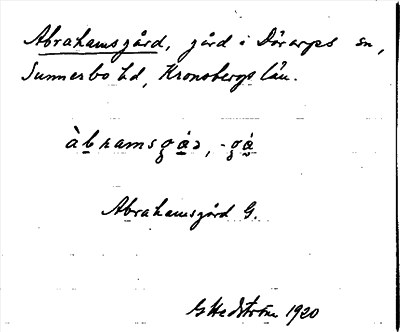 Abrahamsgård, gård i Dörarps sn,
Sunnerbo hd, Kronobergs län.
àbramsgáɹ, -gá
Abrahamsgård G.
G Hedström 1920